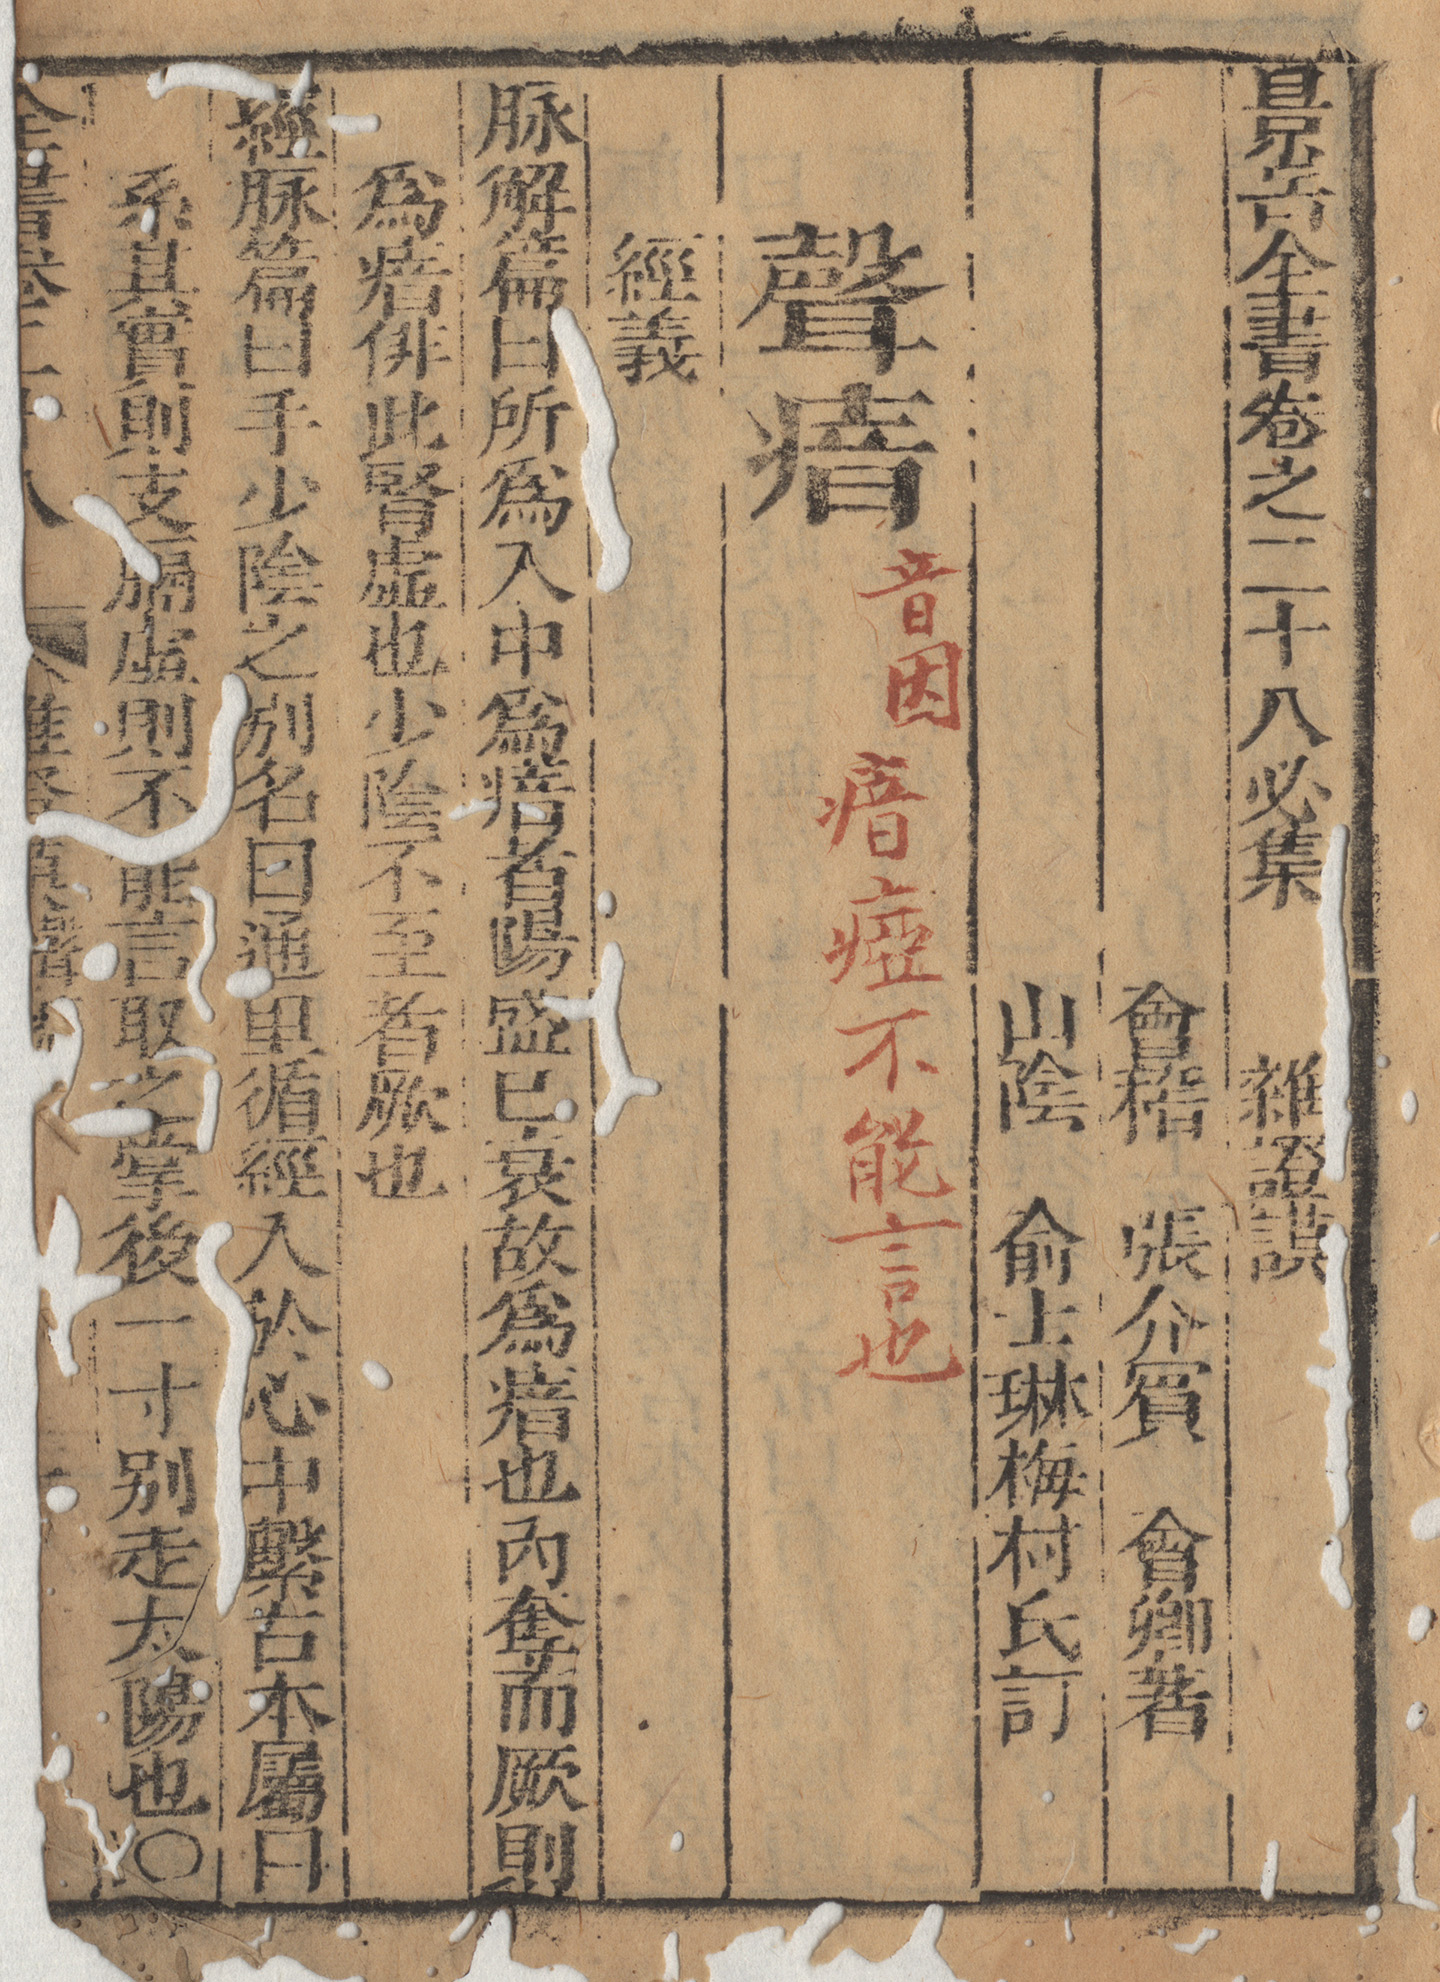 景岳全書卷之二十八必集 雜證謨
會稽 張介賓 會卿著
山陰 俞士琳梅村氏訂
聲瘖
音因 瘖瘂不能言也
經義
脉解篇曰所爲入中爲瘖者陽盛已衰故爲瘖也內奪而厥則
爲瘖俳此腎虛也少陰不至者厥也
經脉篇曰手少陰之別名曰通里循經入於心中繫舌本屬目
系其實則支膈虛則不能言取之掌後一寸别走太陽也〇
全書卷二十八